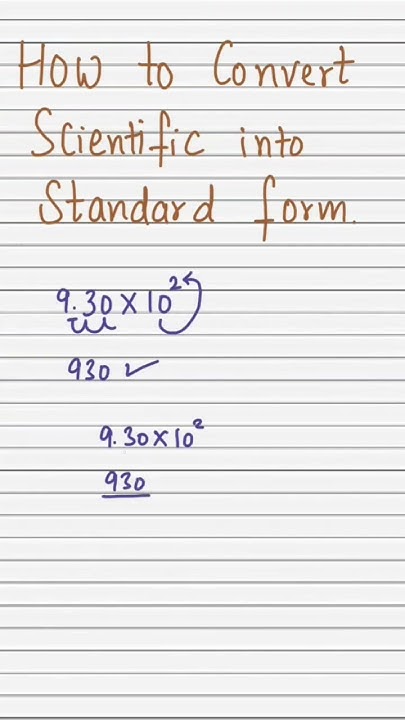 How to Convert
Scientific into
Standard form.
9.30 × 10²
930 ✓
9.30 × 10²
930